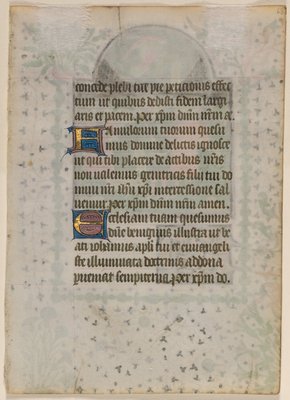 concede plebi tue pie peticionis effec
tum ut quibus dedisti fidem largi
aris et pacem. Per xp̄m dn̄m nr̄m a.
Famulorum tuorum quesu
mus domine delictis ignosce
ut qui tibi placere de actibus nr̄is
non ualemus genitricis filii tui do
mini nr̄i ih̄u xp̄i intercessione sal
uemur per xp̄m dn̄m nr̄m amen.
Ecclesiam tuam quesumus
dn̄e benignus illustra ut be
ati iohannis apl̄i tui et euuangeli
ste illuminata doctrinis ad dona
perueniat sempiterna. Per xp̄m do.